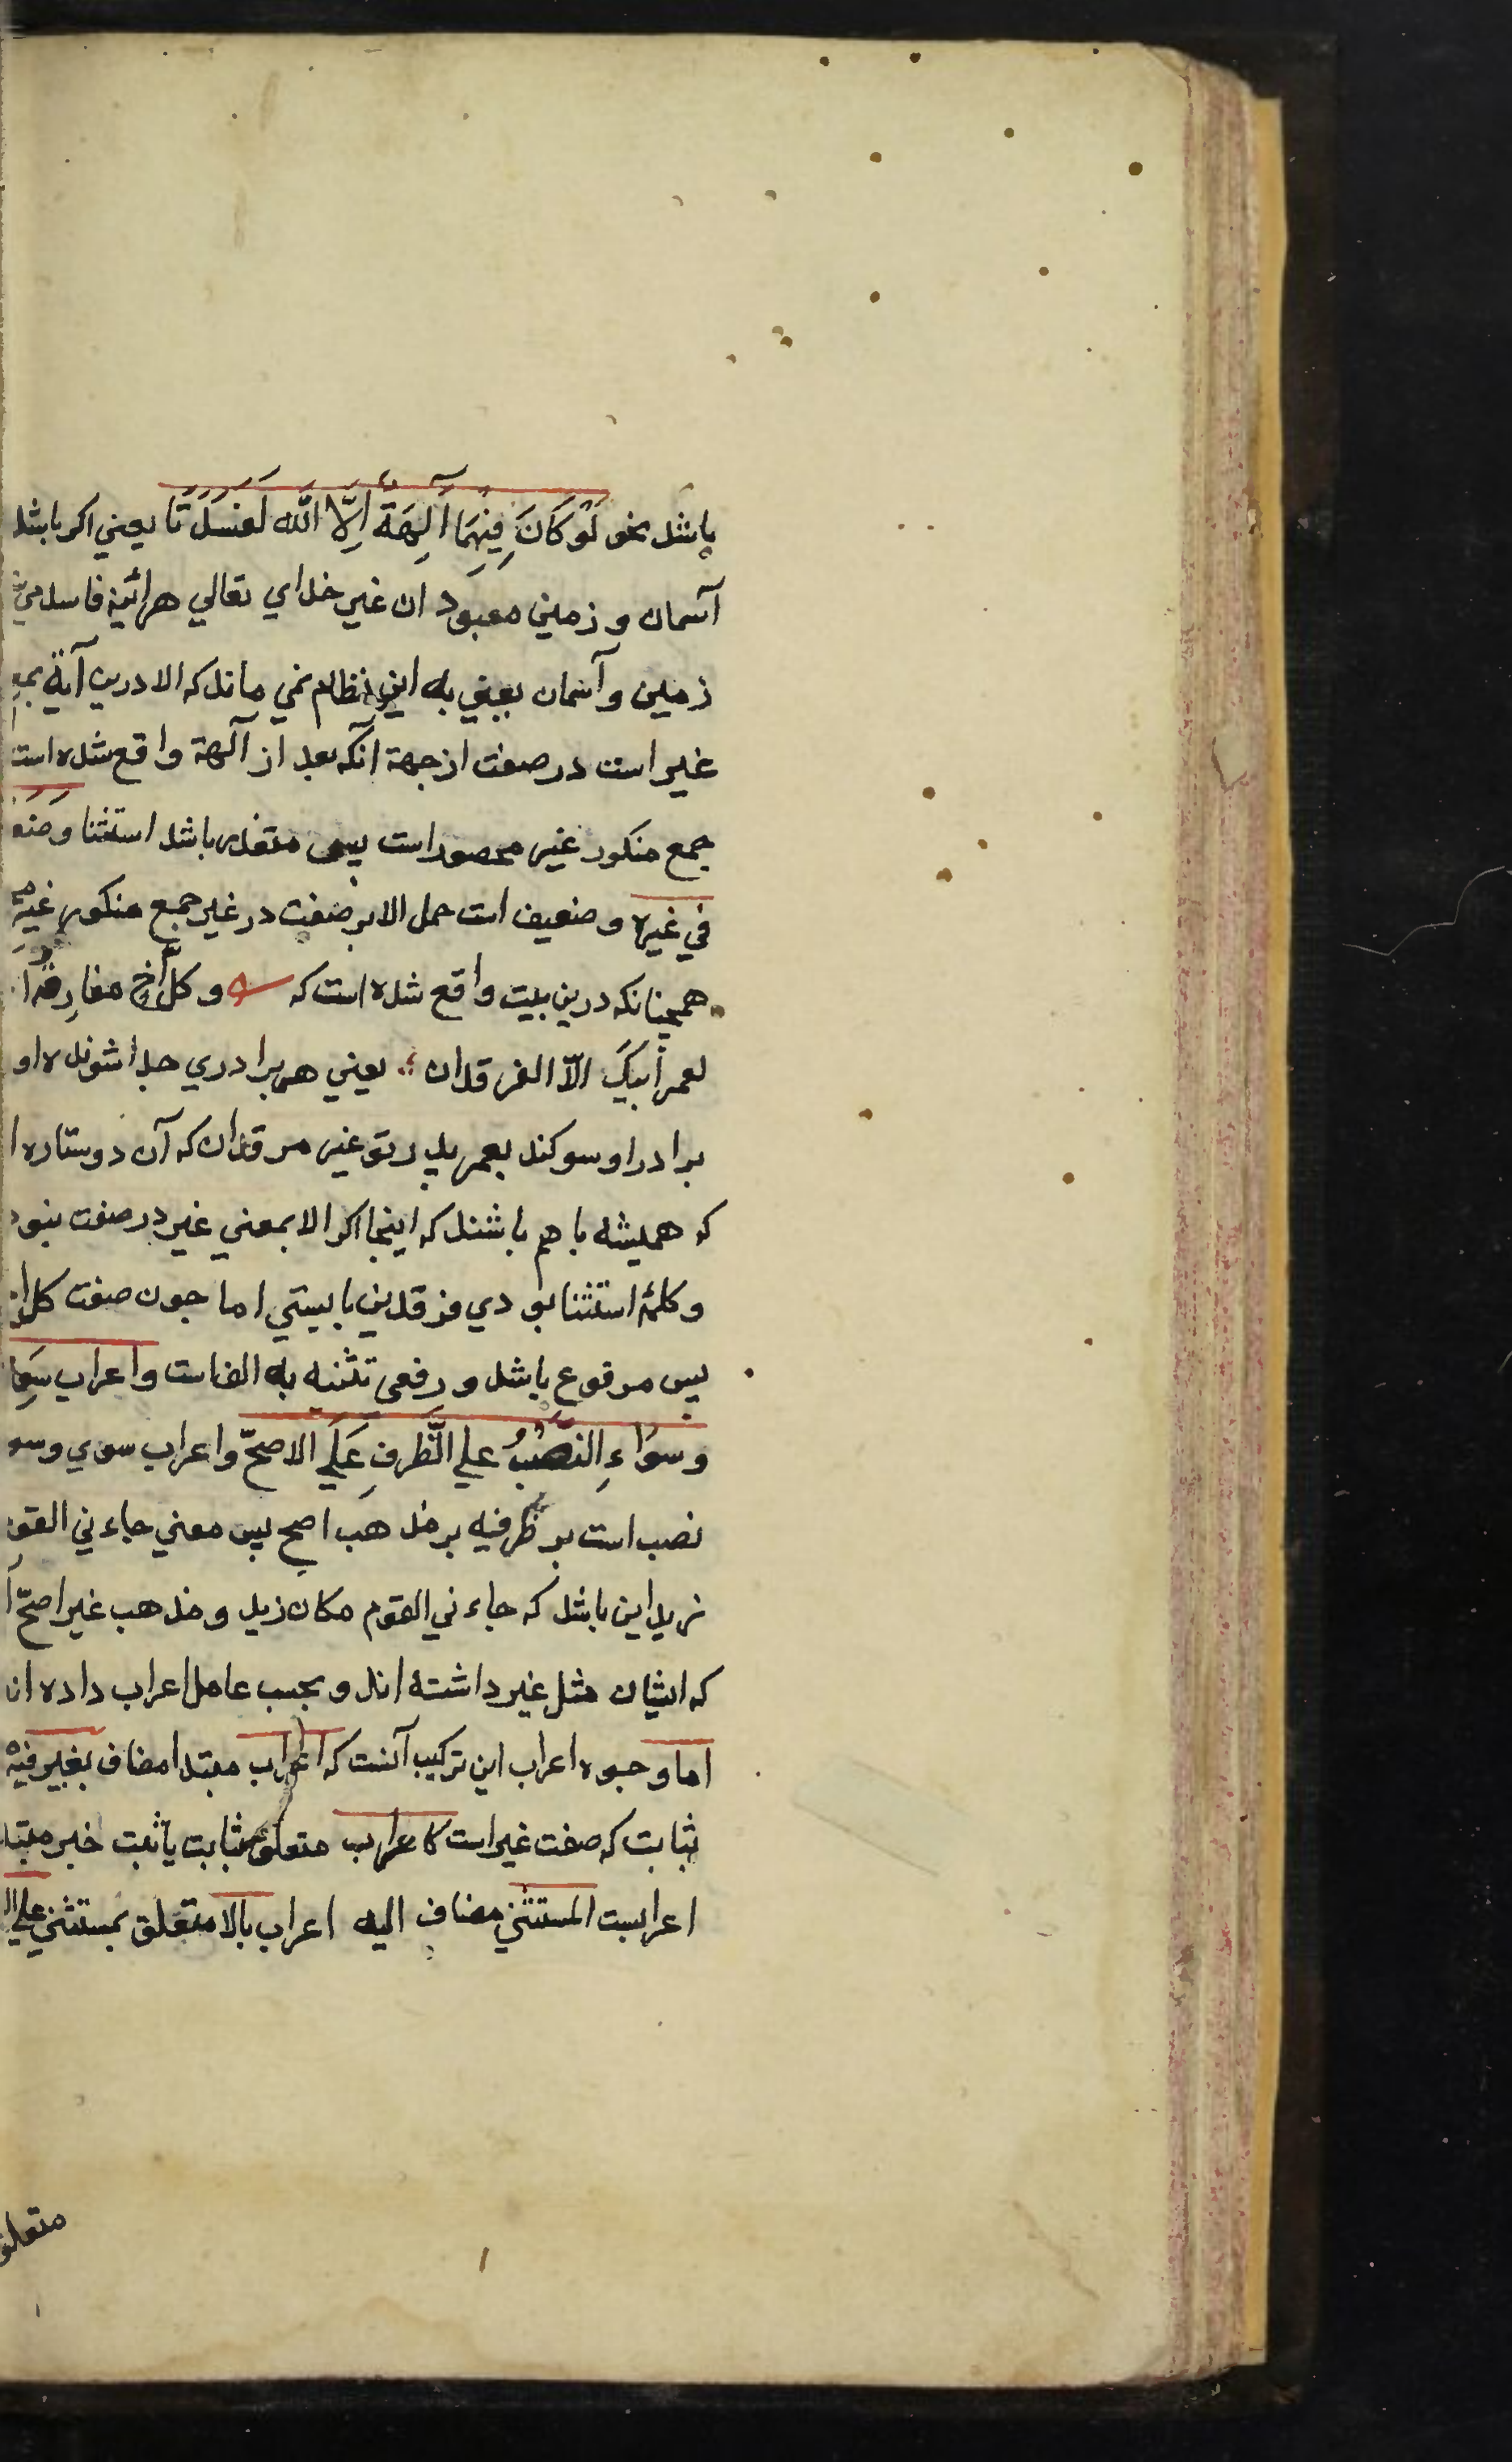 باشد نحو لَوْ كَانَ فِيْهِمَا آلِهَةٌ اِلَّا اللّٰه لَفَسَدَتَا يعني اكر باشد
آسمان و زمين معبود ان غير خداي تعالي هرائينه فاسد
زمين وآسمان يعني به اين نظام نمي ماند كه الا درين آية
غير است در صفت از جهة آنكه بعد از آلهة واقع شده است
جمع منكور غير محصور است پس متعذر باشد استثنا وضعف
في غيره وضعيف است حمل الا بر صفت در غير جمع منكور غير
همچنانكه درين بيت واقع شده است كه وكلُّ أخٍ مفارقُه
لعمر أبيكَ الّا الفرقدان يعني هر برادري جدا شونده او
برادر او سوكند بعمر پدر تو غير فرقدان كه آن دو ستاره
كه هميشه با هم باشند كه اينجا اكر الا بمعني غير در صفت نبود
وكلمۀ استثنا بودي فرقدين بايستي اما چون صفت كل
پس مرفوع باشد ورفعى تثنيه به الف است واعراب
وسواءِ النصبُ علي الظرفِ عَلَي الاصحّ واعراب سوي وسو
نصب است بر ظرفيه بر مذهب اصح پس معني جاءني القوم
زيد اين باشد كه جاءني القوم مكان زيد ومذهب غير اصحّ
كه ايشان مثل غير داشته اند و بحسب عامل اعراب داده ان
اما وجوه اعراب اين تركيب آنست كه اعراب مبتدا مضاف بغير فيه
ثابت كه صفت غير است كاعراب متعلق بثابت يا ثبت خبر مبتد
اعرابست المستثني مضاف اليه اعراب بالا متعلق بمستثني علي
متعلق